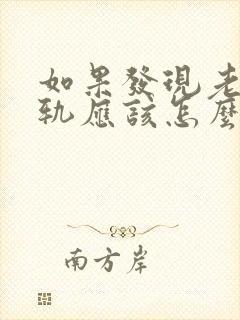 如果發現老
軌應該怎麼
南方岸